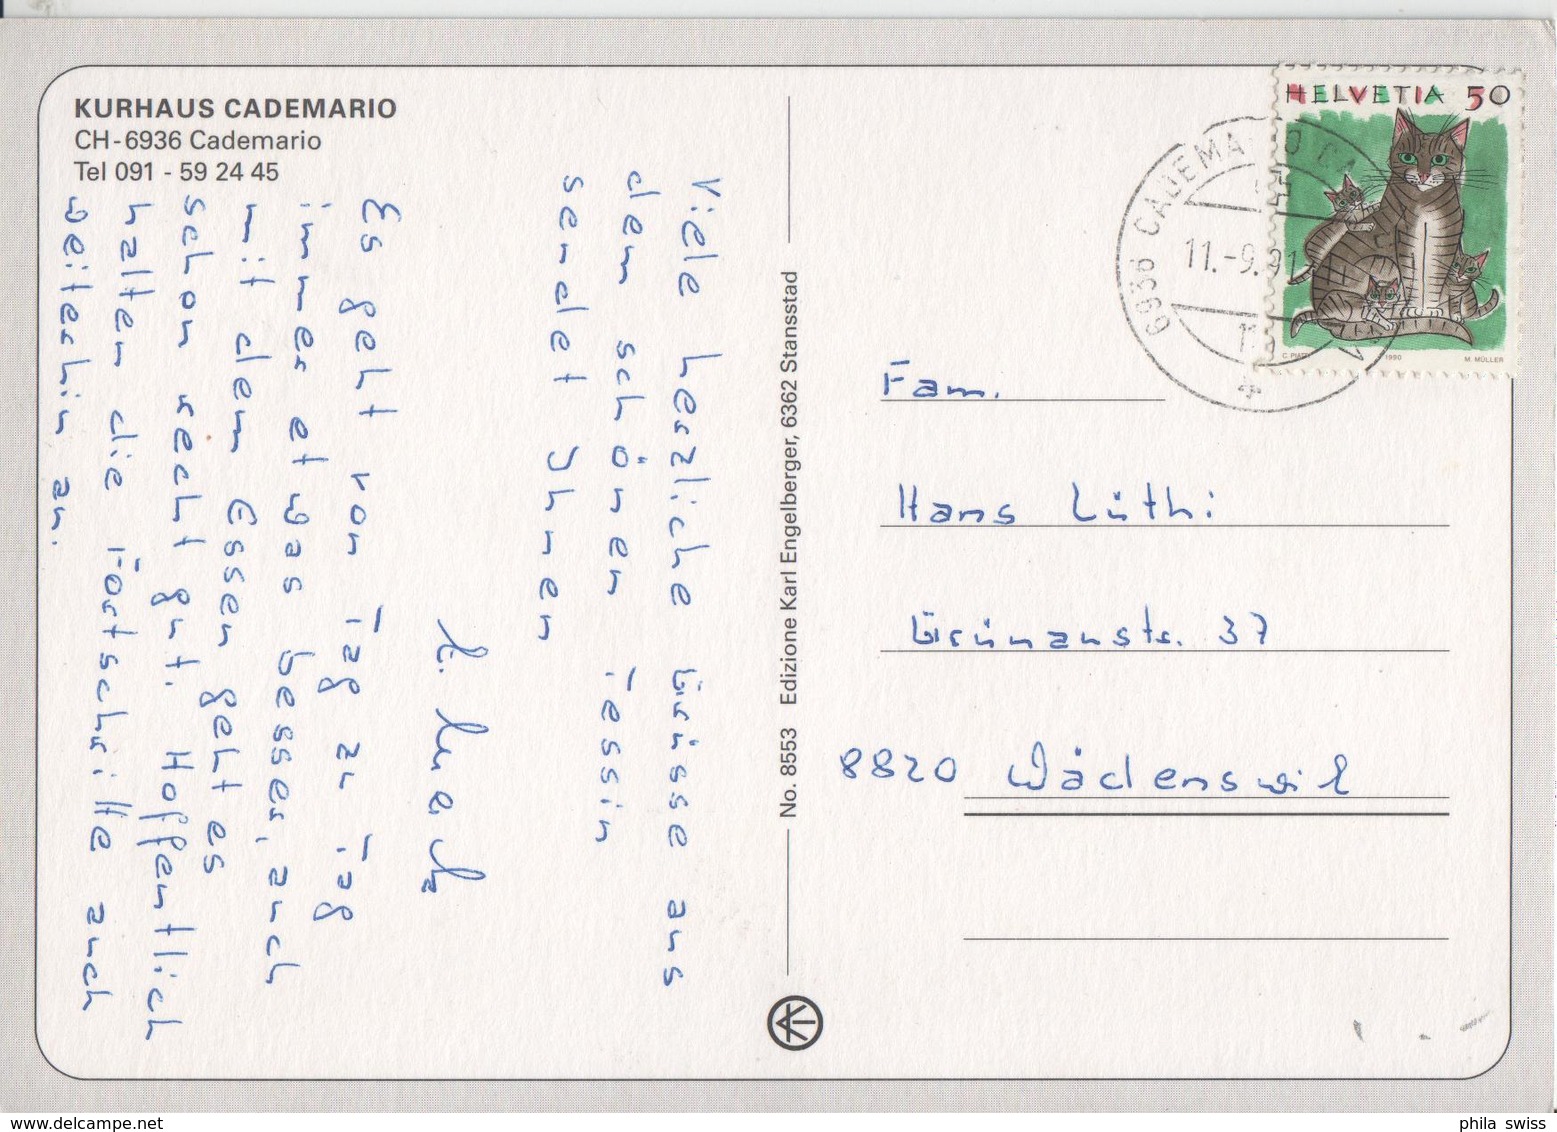 KURHAUS CADEMARIO
CH-6936 Cademario
Tel 091 - 59 24 45
Viele herzliche Grüsse aus
dem schönen Tessin
sendet Ihnen
Es geht von Tag zu Tag
immer etwas besser, auch
mit dem Essen geht es
schon recht gut. Hoffentlich
halten die Fortschritte auch
weiterhin an.
No. 8553 Edizione Karl Engelberger, 6362 Stansstad
HELVETIA 50
1990 M. MÜLLER
6936 CADEMARIO
11.-9.91
Fam.
Hans Lüthi
Grünaustr. 37
8820 Wädenswil
phila swiss